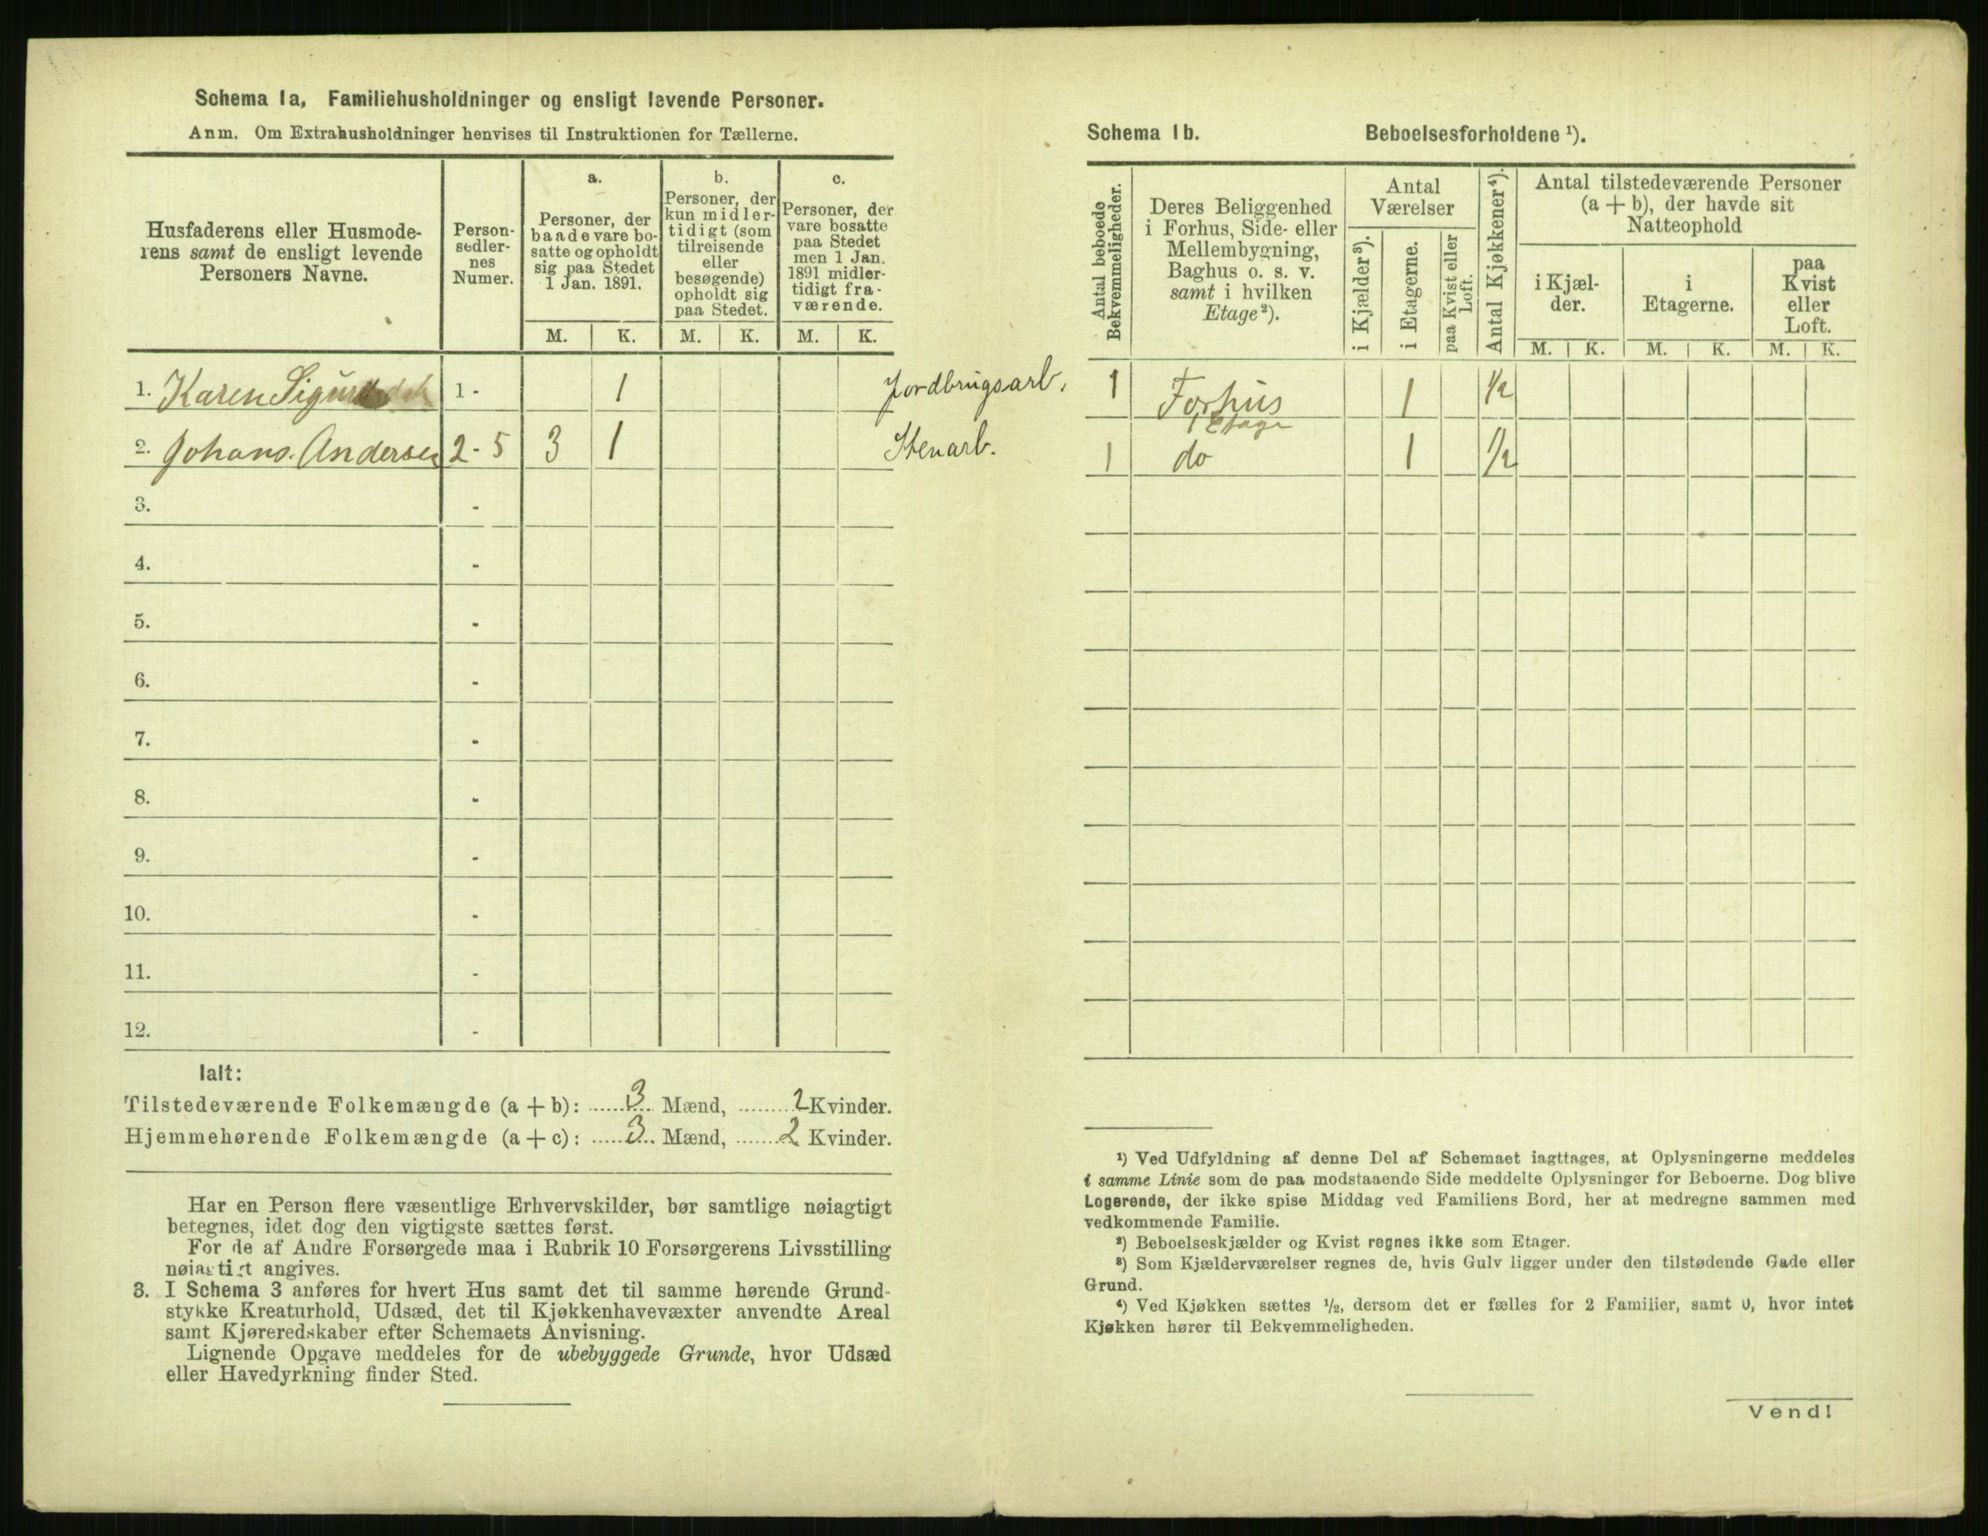 Schema 1a, Familiehusholdninger og ensligt levende Personer.
Anm. Om Extrahusholdninger henvises til Instruktionen for Tællerne.
Husfaderens eller Husmode-
rens samt de ensligt levende
Personers Navne.
Person-
sedler-
nes
Numer.
a.
Personer, der
baade vare bo-
satte og opholdt
sig paa Stedet
1 Jan. 1891.
b.
Personer, der
kun midler-
tidigt (som
tilreisende
eller
besøgende)
opholdt sig
paa Stedet.
c.
Personer, der
vare bosatte
paa Stedet
men 1 Jan.
1891 midler-
tidigt fra-
værende.
M. K. M. K. M. K.
1. Karen 1 - 1 Jordbrugsarb.
2. Johans. Andersen 2 - 5 3 1 Stenarb.
3. -
4. -
5. -
6. -
7. -
8. -
9. -
10. -
11. -
12. -
Ialt:
Tilstedeværende Folkemængde (a + b): 3 Mænd, 2 Kvinder.
Hjemmehørende Folkemængde (a + c): 3 Mænd, 2 Kvinder.
Har en Person flere væsentlige Erhvervskilder, bør samtlige nøiagtigt
betegnes, idet dog den vigtigste sættes først.
For de af Andre Forsørgede maa i Rubrik 10 Forsørgerens Livsstilling
nøiagtigt angives.
3. I Schema 3 anføres for hvert Hus samt det til samme hørende Grund-
stykke Kreaturhold, Udsæd, det til Kjøkkenhavevæxter anvendte Areal
samt Kjøreredskaber efter Schemaets Anvisning.
Lignende Opgave meddeles for de ubebyggede Grunde, hvor Udsæd
eller Havedyrkning finder Sted.
Schema 1b. Beboelsesforholdene ¹).
Antal beboede
Bekvemmeligheder.
Deres Beliggenhed
i Forhus, Side- eller
Mellembygning,
Baghus o. s. v.
samt i hvilken
Etage ²).
Antal
Værelser
i Kjælder ³).
i Etagerne.
paa Kvist eller
Loft.
Antal Kjøkkener ⁴).
Antal tilstedeværende Personer
(a + b), der havde sit
Natteophold
i Kjæl-
der.
i
Etagerne.
paa
Kvist
eller
Loft.
M. K. M. K. M. K.
1 Forhus 1 ½
1 Etage
1 do 1 ½
¹) Ved Udfyldning af denne Del af Schemaet iagttages, at Oplysningerne meddeles
i samme Linie som de paa modstaaende Side meddelte Oplysninger for Beboerne. Dog blive
Logerende, der ikke spise Middag ved Familiens Bord, her at medregne sammen med
vedkommende Familie.
²) Beboelseskjælder og Kvist regnes ikke som Etager.
³) Som Kjælderværelser regnes de, hvis Gulv ligger under den tilstødende Gade eller
Grund.
⁴) Ved Kjøkken sættes ½, dersom det er fælles for 2 Familier, samt 0, hvor intet
Kjøkken hører til Bekvemmeligheden.
Vend!